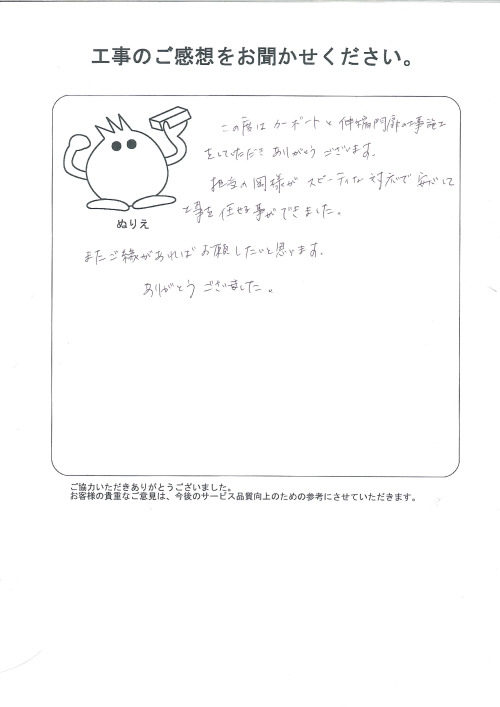 工事のご感想をお聞かせください。
この度はカーポートと伸縮門扉の工事施工
をしていただきありがとうございます。
担当の岡様がスピーディな対応で安心して
工事を任せる事ができました。
ぬりえ
またご縁があればお願いしたいと思います。
ありがとうございました。
ご協力いただきありがとうございました。
お客様の貴重なご意見は、今後のサービス品質向上のための参考にさせていただきます。